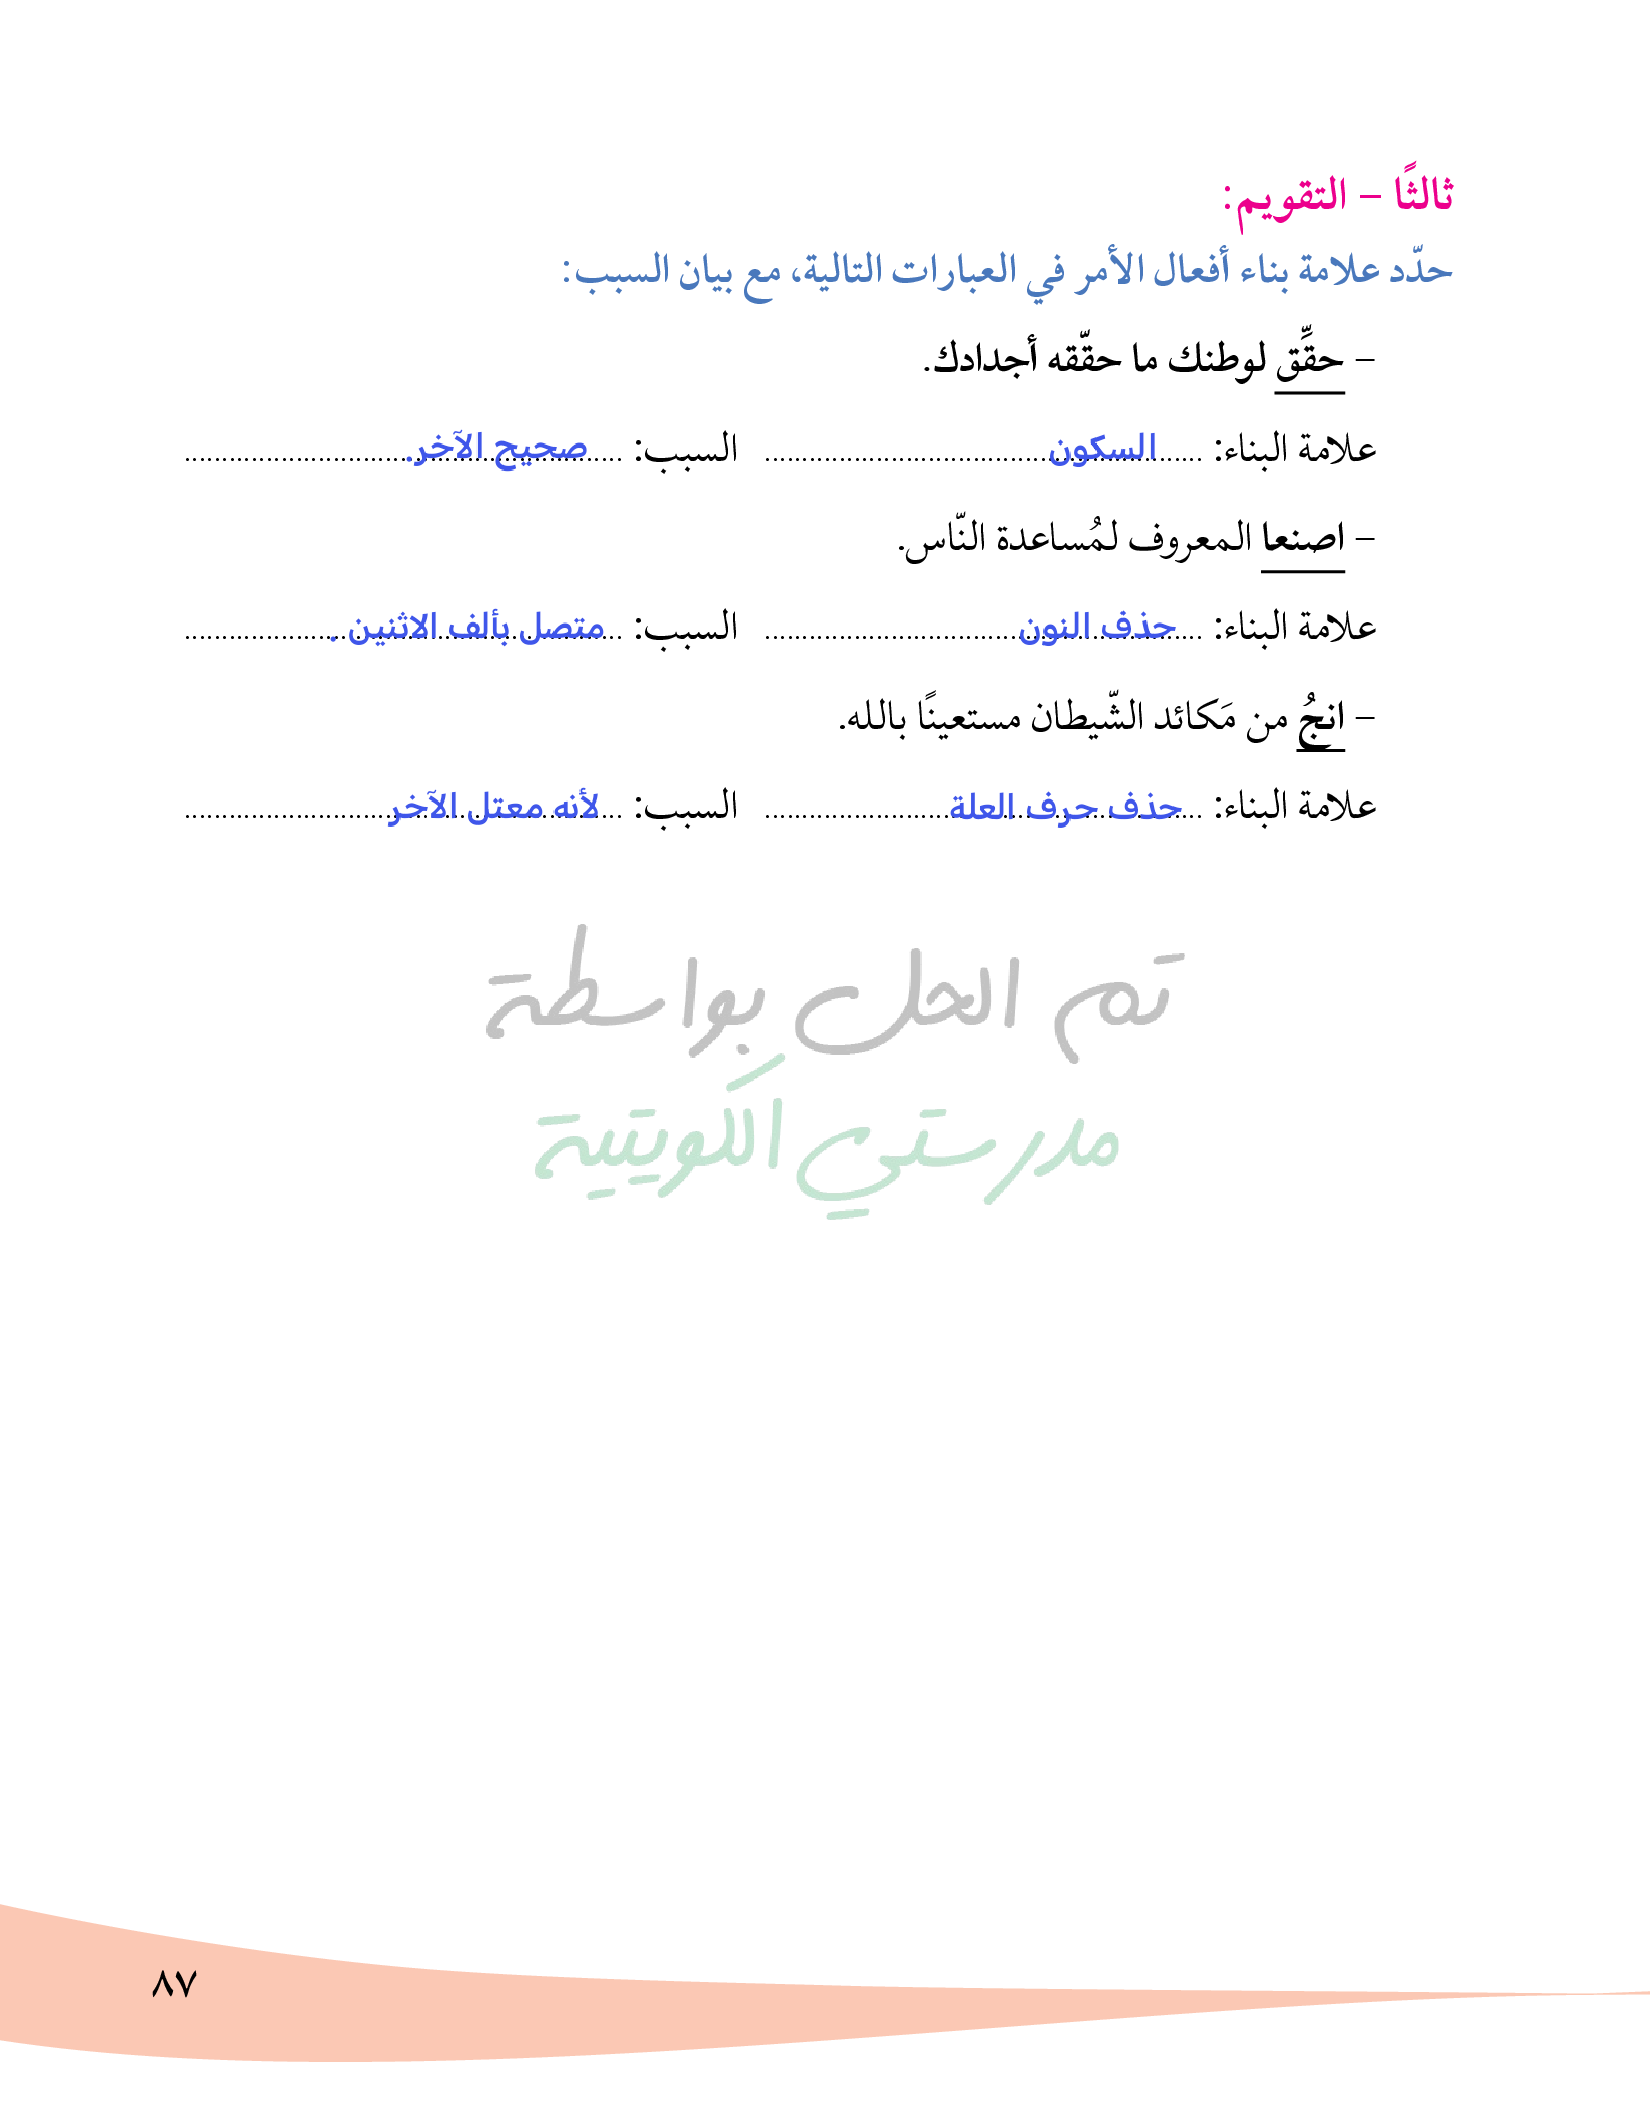 ثالثًا – التقويم:
حدّد علامة بناء أفعال الأمر في العبارات التالية، مع بيان السبب:
– حقِّق لوطنك ما حقّقه أجدادك.
علامة البناء: السكون السبب: صحيح الآخر.
– اصنعا المعروف لمُساعدة النّاس.
علامة البناء: حذف النون السبب: متصل بألف الاثنين .
– انجُ من مَكائد الشّيطان مستعينًا بالله.
علامة البناء: حذف حرف العلة السبب: لأنه معتل الآخر
تم الحل بواسطة
مدرستي الكويتية
٨٧